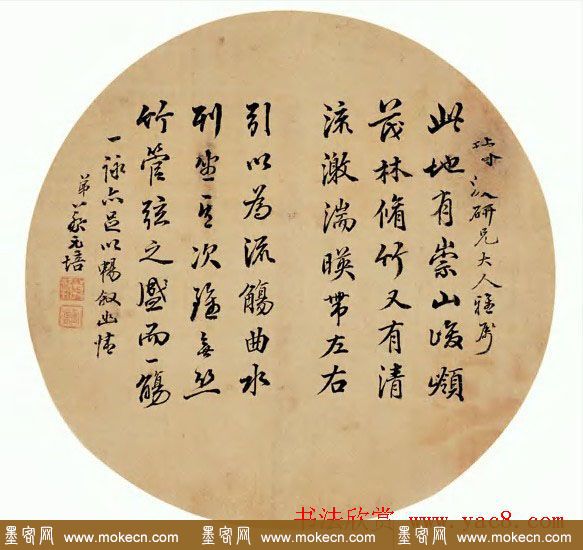 研兄大人雅属
此地有崇山峻領
茂林脩竹又有清
流激湍暎帶左右
引以為流觴曲水
列坐其次雖無絲
竹管弦之盛而一觴
一詠亦足以暢叙幽情
弟蔡元培
书法欣赏 www.yac8.com
墨客网 www.mokecn.com 墨客网 www.mokecn.com 墨客网 www.mokecn.com